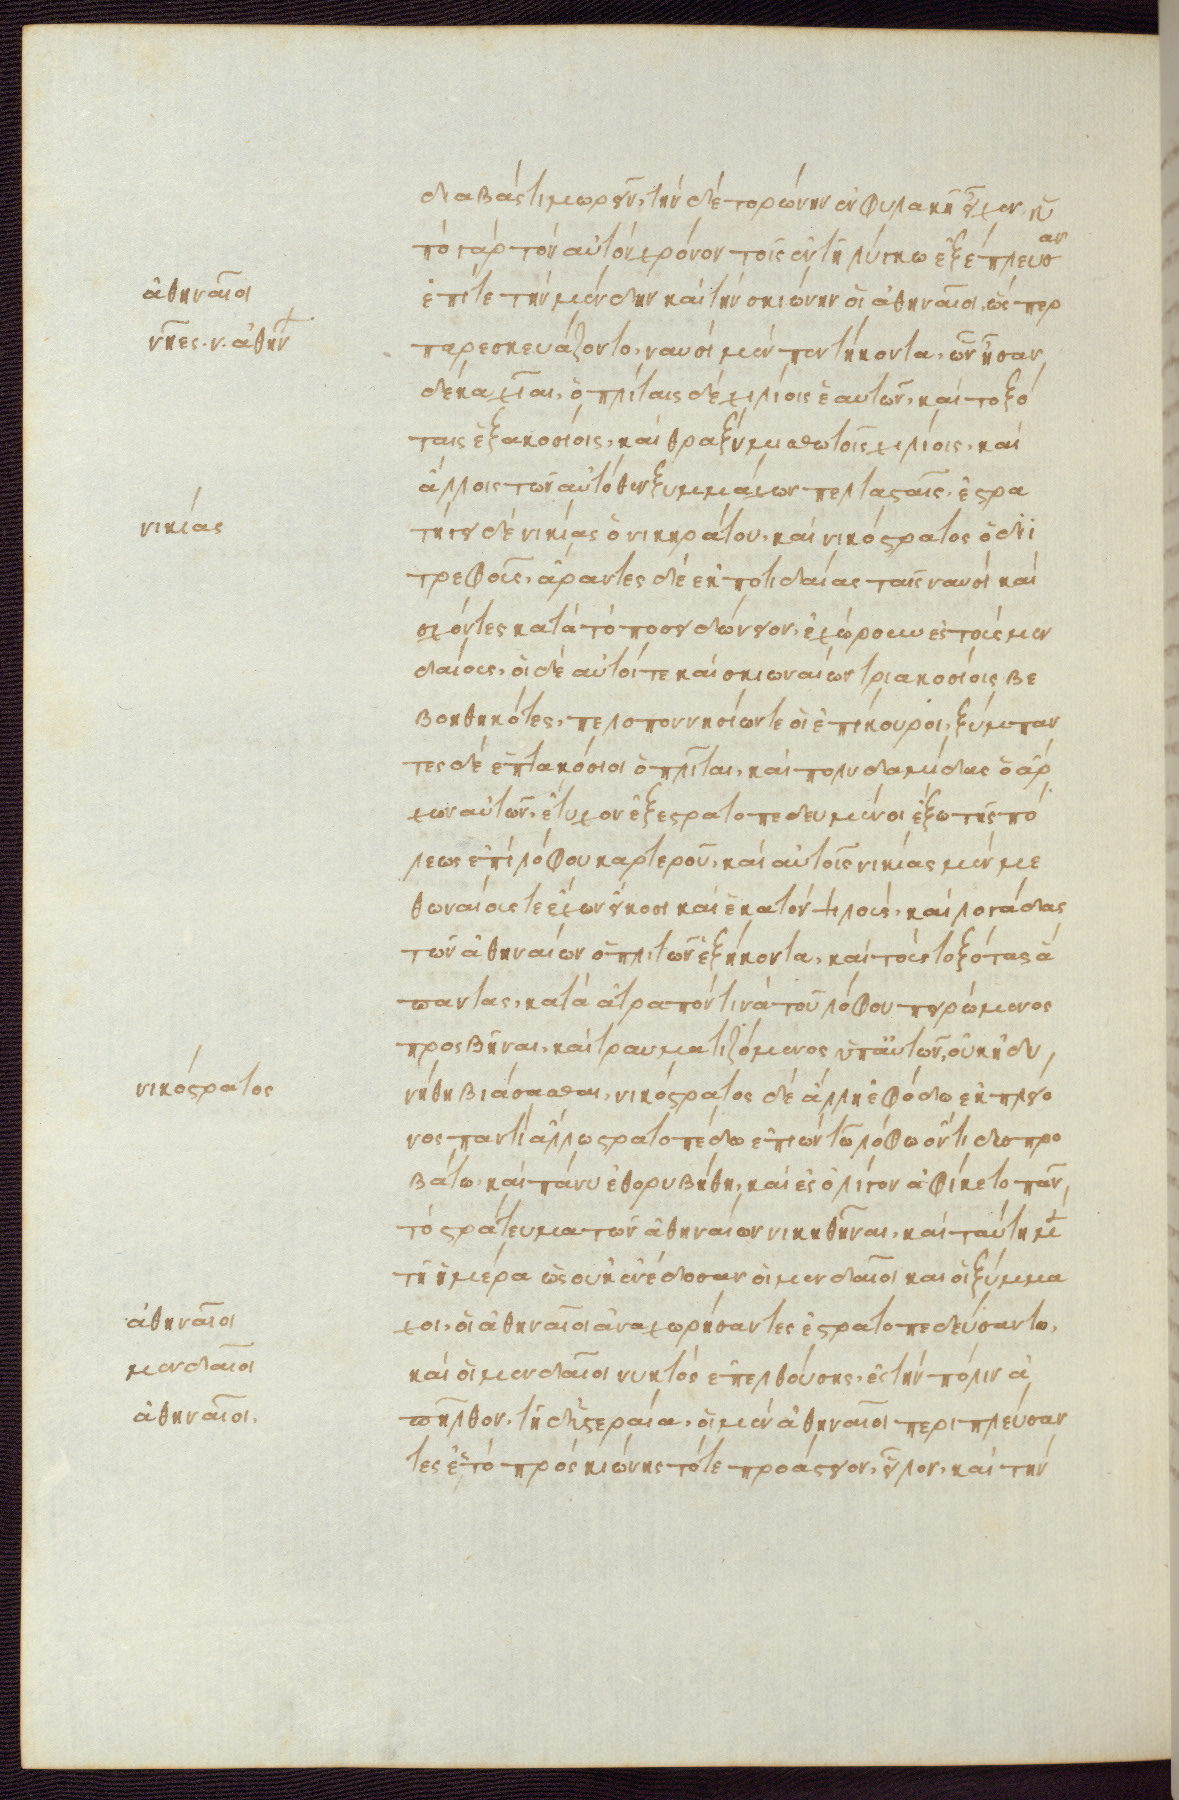 διαβὰς τιμωρεῖν, τὴν δὲ τορώνην ἐν φυλακῆ εἶχεν, ὑ
πὸ γὰρ τὸν αὐτὸν χρόνον τοῖς ἐν τῆ λύγκω ἐξέπλευσαν
ἐπί τε τὴν μένδην καὶ τὴν σκιώνην οἱ ἀθηναῖοι, ὥσπερ
παρεσκευάζοντο, ναυσὶ μὲν πεντήκοντα, ὧν ἦσαν
δέκα χῖαι, ὁπλίταις δὲ χιλίοις ἑαυτῶν, καὶ τοξό
ταις ἑξακοσίοις, καὶ θραξὶ μισθωτοῖς χιλίοις, καὶ
ἄλλοις τῶν αὐτόθεν ξυμμάχων πελτασταῖς, ἐστρα
τήγει δὲ νικίας ὁ νικηράτου, καὶ νικόστρατος ὁ διι
τρεφοῦς, ἄραντες δὲ ἐκ ποτιδαίας ταῖς ναυσὶ καὶ
σχόντες κατὰ τὸ ποσειδώνειον, ἐχώρουν ἐς τοὺς μεν
δαίους, οἱ δὲ αὐτοί τε καὶ σκιωναίων τριακοσίοις βε
βοηθηκότες, πελοποννησίων τε οἱ ἐπίκουροι, ξύμπαν
τες δὲ ἑπτακόσιοι ὁπλῖται, καὶ πολυδαμίδας ὁ ἄρ
χων αὐτῶν, ἔτυχον ἐξεστρατοπεδευμένοι ἔξω τῆς πό
λεως ἐπὶ λόφου καρτεροῦ, καὶ αὐτοῖς νικίας μὲν με
θωναίους τε ἔχων εἴκοσι καὶ ἑκατὸν ψιλοὺς, καὶ λογάδας
τῶν ἀθηναίων ὁπλιτῶν ἑξήκοντα, καὶ τοὺς τοξότας ἅ
παντας, κατὰ ἀτραπόν τινα τοῦ λόφου πειρώμενος
προσβῆναι, καὶ τραυματιζόμενος ὑπ' αὐτῶν, οὐκ ἠδυ
νήθη βιάσασθαι, νικόστρατος δὲ ἄλλη ἐφόδω ἐκ πλείο
νος παντὶ ἄλλω στρατοπέδω ἐπιὼν τῶ λόφω ὄντι δυσπρο
βάτω, καὶ πάνυ ἐθορυβήθη, καὶ ἐς ὀλίγον ἀφίκετο πᾶν
τὸ στράτευμα τῶν ἀθηναίων νικηθῆναι, καὶ ταύτη μὲν
τῆ ἡμέρα ὡς οὐκ ἐνέδοσαν οἱ μενδαῖοι καὶ οἱ ξύμμα
χοι, οἱ ἀθηναῖοι ἀναχωρήσαντες ἐστρατοπεδεύσαντο,
καὶ οἱ μενδαῖοι νυκτὸς ἐπελθούσης, ἐς τὴν πόλιν ἀ
πῆλθον, τῆ δ' ὑστεραία, οἱ μὲν ἀθηναῖοι περιπλεύσαν
τες ἐς τὸ πρὸς σκιώνης τό τε προάστειον, εἷλον, καὶ τὴν
ἀθηναῖοι
νῆες. ν. ἀθην
νικίας
νικόστρατος
ἀθηναῖοι
μενδαῖοι
ἀθηναῖοι.